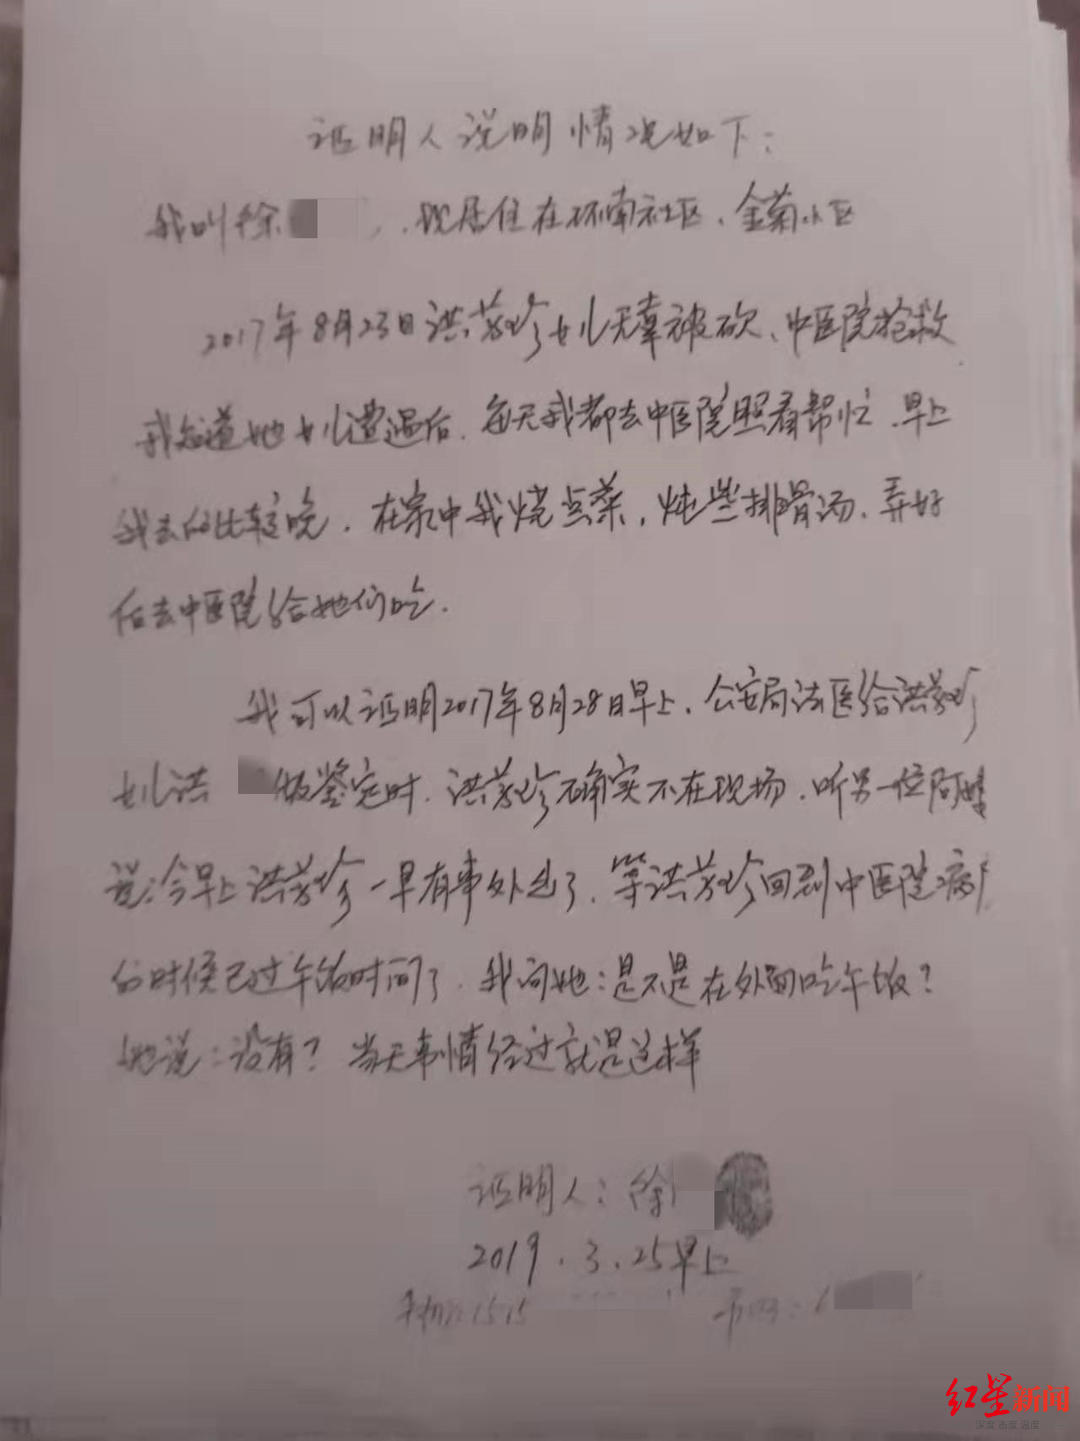 证明人说明情况如下：
我叫徐 ，.现居住在环南社区、金菊小区
2017年8月23日洪芬珍女儿无辜被砍、中医院抢救
我知道她女儿遭遇后.每天我都去中医院照看帮忙.早上
我去的比较晚.在家中我烧点菜，炖些排骨汤、弄好
后去中医院给她们吃.
我可以证明2017年8月28日早上.公安局法医给洪芬珍
女儿洪 做鉴定时.洪芬珍确实不在现场.听另一位阿姨
说：今早上洪芬珍一早有事外出了.等洪芬珍回到中医院病房
的时候已过午饭时间了.我问她：是不是在外面吃午饭？
她说：没有？当天事情经过就是这样
证明人：徐
2019.3.25早上
手机：1515
红星新闻
深度 态度 温度